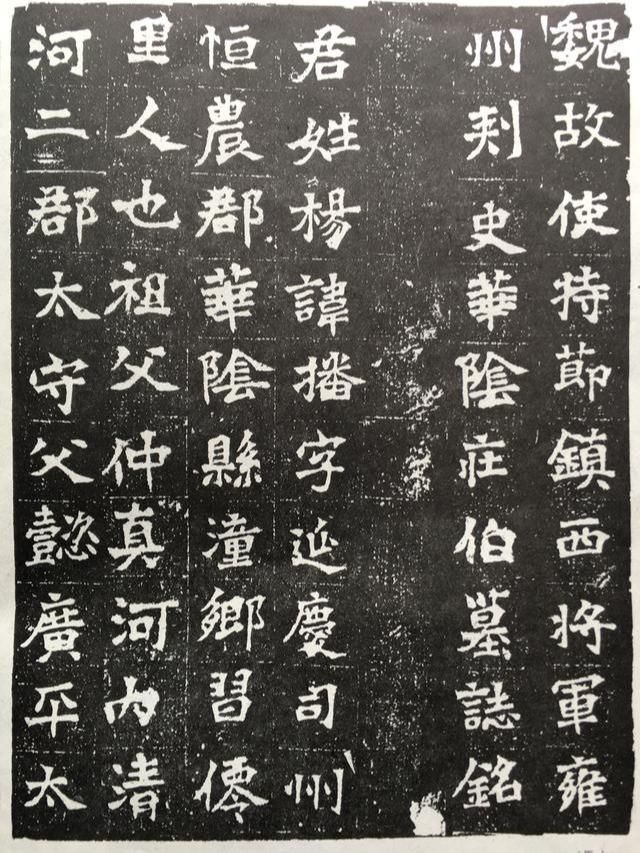 魏故使持節鎮西將軍雍
州刾史華陰莊伯墓誌銘
君姓楊諱播字延慶司州
恒農郡華陰縣潼鄉習僊
里人也祖父仲真河內清
河二郡太守父懿廣平太